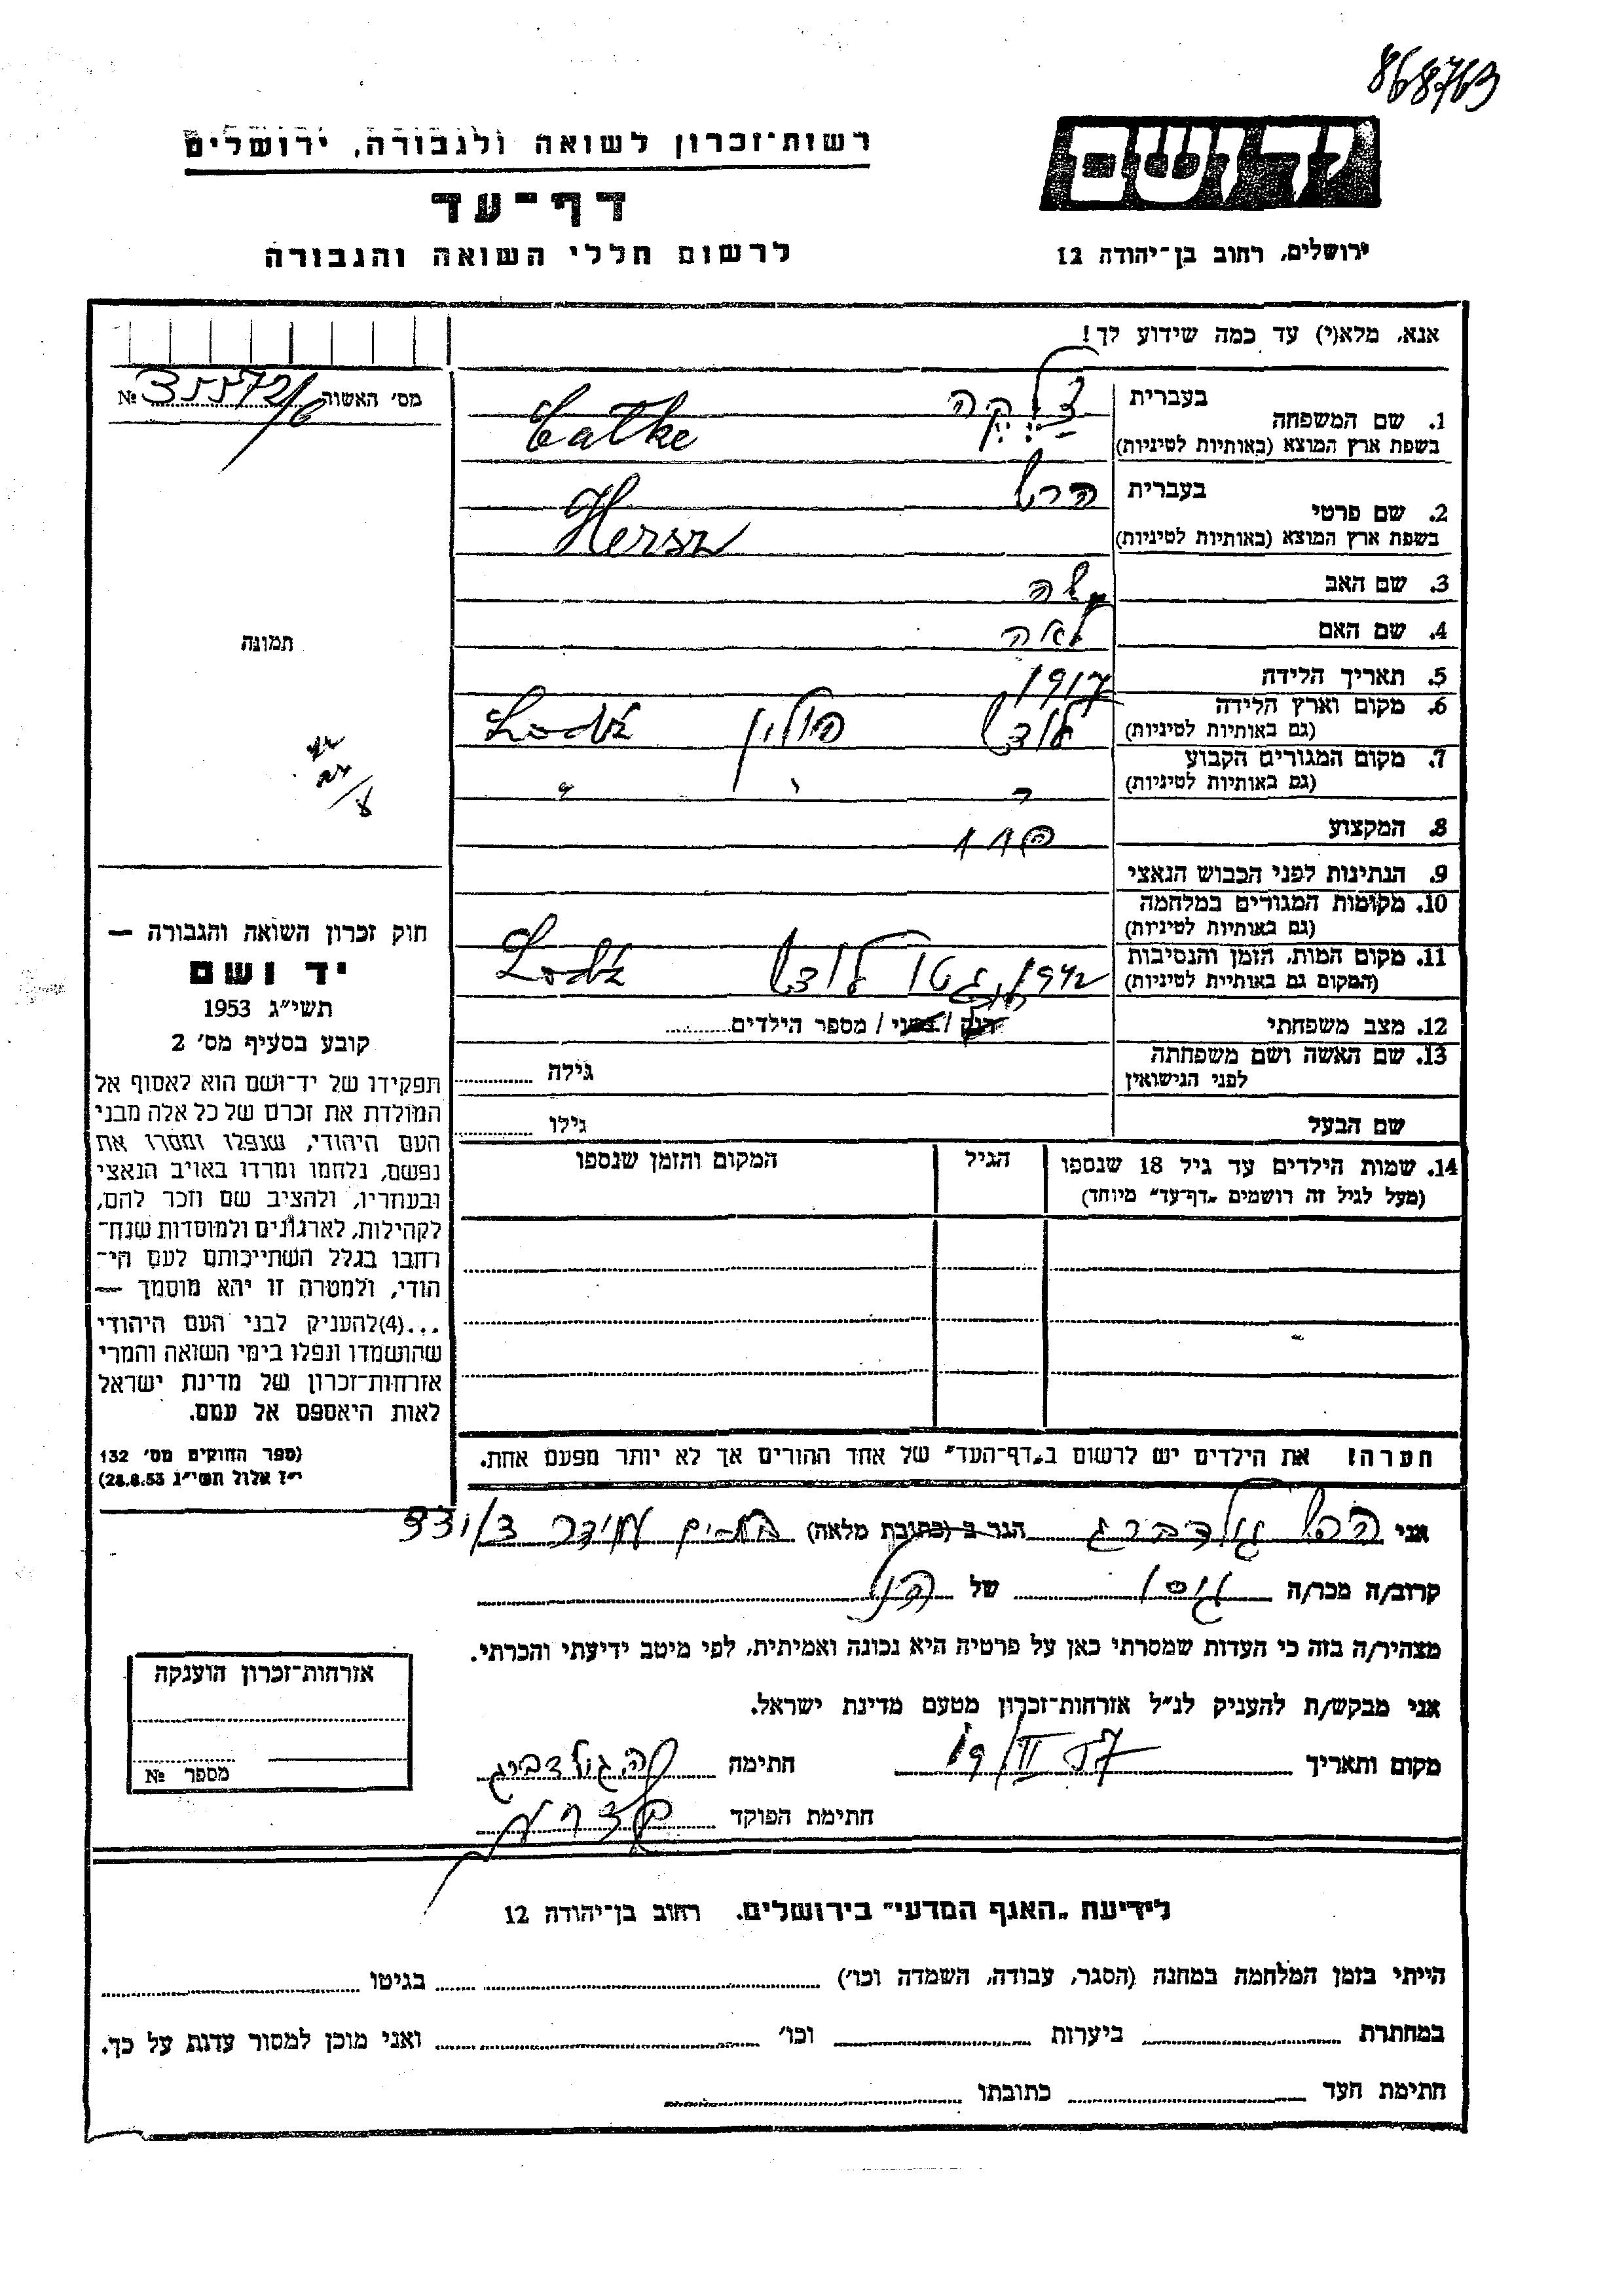 868763
רשות־זכרון לשואה ולגבורה, ירושלים
יד ושם
דף־עד
לרשום חללי השואה והגבורה
ירושלים, רחוב בן־יהודה 12
אנא, מלא(י) עד כמה שידוע לך!
מס׳ האשוה № 35572/6
1. שם המשפחה בעברית
בשפת ארץ המוצא (באותיות לטיניות)
2. שם פרטי בעברית הרש
בשפת ארץ המוצא (באותיות לטיניות) Hersz
3. שם האב משה
4. שם האם לאה
5. תאריך הלידה 1917
6. מקום וארץ הלידה לודז' פולין Lodź
(גם באותיות לטיניות)
7. מקום המגורים הקבוע " " "
(גם באותיות לטיניות)
8. המקצוע
9. הנתינות לפני הכבוש הנאצי
10. מקומות המגורים במלחמה
(גם באותיות לטיניות)
11. מקום המות, הזמן והנסיבות 1942 גטו לודז' Lodź
(המקום גם באותיות לטיניות)
12. מצב משפחתי / מספר הילדים
13. שם האשה ושם משפחתה
לפני הנישואין גילה
שם הבעל גילו
14. שמות הילדים עד גיל 18 שנספו הגיל המקום והזמן שנספו
(מעל לגיל זה רושמים „דף־עד״ מיוחד)
הערה! את הילדים יש לרשום ב„דף־העד״ של אחד ההורים אך לא יותר מפעם אחת.
תמונה
חוק זכרון השואה והגבורה —
יד ושם
תשי״ג 1953
קובע בסעיף מס׳ 2
תפקידו של יד־ושם הוא לאסוף אל
המולדת את זכרם של כל אלה מבני
העם היהודי, שנפלו ומסרו את
נפשם, נלחמו ומרדו באויב הנאצי
ובעוזריו, ולהציב שם וזכר להם,
לקהילות, לארגונים ולמוסדות שנח־
רבו בגלל השתייכותם לעם הי־
הודי, ולמטרה זו יהא מוסמך —
...(4)להעניק לבני העם היהודי
שהושמדו ונפלו בימי השואה והמרי
אזרחות־זכרון של מדינת ישראל
לאות היאספם אל עמם.
(ספר החוקים מס׳ 132
י״ז אלול תשי״ג 28.8.53)
אני גולדברג הגר ב (כתובת מלאה)
קרוב/ה מכר/ה גיסו של הנ"ל
מצהיר/ה בזה כי העדות שמסרתי כאן על פרטיה היא נכונה ואמיתית, לפי מיטב ידיעתי והכרתי.
אני מבקש/ת להעניק לנ״ל אזרחות־זכרון מטעם מדינת ישראל.
מקום ותאריך 19/II 57 חתימה גולדברג
חתימת הפוקד
אזרחות־זכרון הוענקה
מספר №
לידיעת „האגף המדעי״ בירושלים. רחוב בן־יהודה 12
הייתי בזמן המלחמה במחנה (הסגר, עבודה, השמדה וכו׳) בגיטו
במחתרת ביערות וכו׳ ואני מוכן למסור עדות על כך.
חתימת העד כתובתו